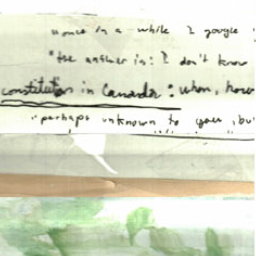 once in a while I google
"the answer is: I don't know
constitution in Canada: when, how
"perhaps unknown to you, bu